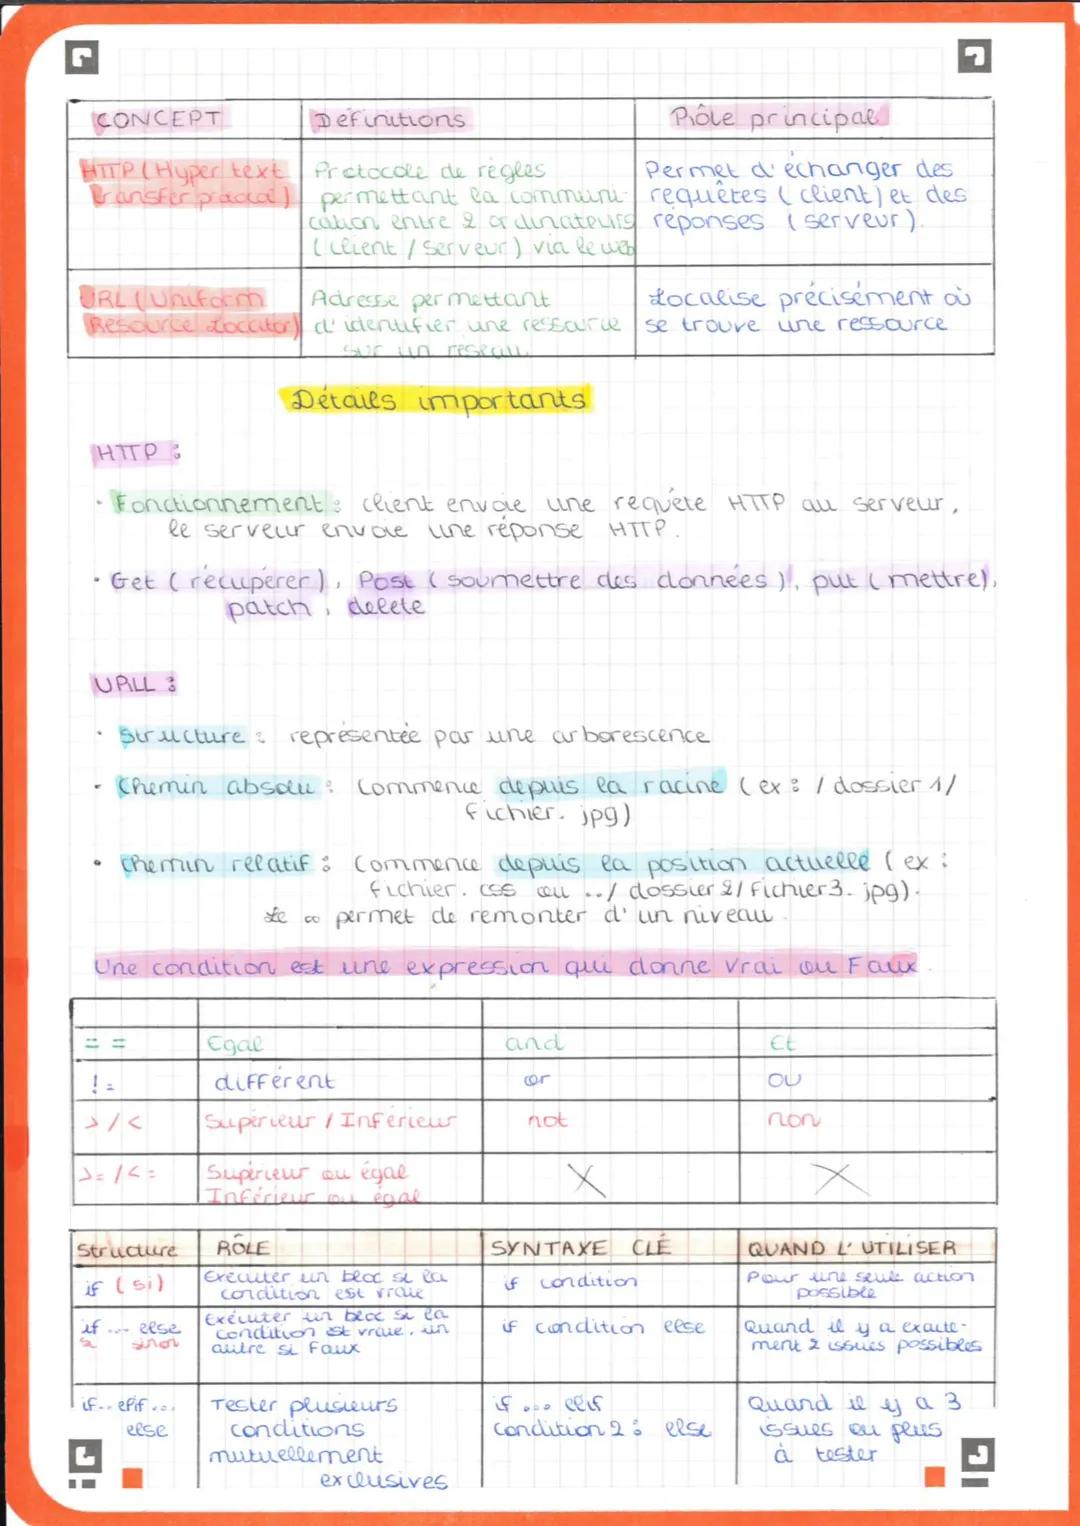 CONCEPT Définitions Rôle principal
HTTP (Hyper text Protocole de règles Permet d'échanger des
transfer protocol) permettant la communi- requêtes (client) et des
cation entre 2 ordinateurs réponses (serveur).
(client / serveur) via le web
URL (Uniform Adresse permettant Localise précisément où
Resource Locator) d'identifier une ressource se trouve une ressource
sur un réseau.
Détails importants
HTTP :
• Fonctionnement : client envoie une requête HTTP au serveur,
le serveur envoie une réponse HTTP.
• Get (récupérer), Post (soumettre des données), put (mettre),
patch, delete
URLL :
• Structure : représentée par une arborescence
• Chemin absolu : Commence depuis la racine (ex : / dossier 1/
fichier. jpg)
• Chemin relatif : Commence depuis la position actuelle (ex :
fichier. css ou ../ dossier 2/ Fichier3. jpg).
Le .. permet de remonter d'un niveau.
Une condition est une expression qui donne Vrai ou Faux.
== Egal and Et
!= différent or ou
>/< Supérieur / Inférieur not non
>= /<= Supérieur ou égal X X
Inférieur ou égal
Structure RÔLE SYNTAXE CLÉ QUAND L'UTILISER
if (si) Executer un bloc si la if condition Pour une seule action
condition est vraie possible
if ... else Exécuter un bloc si la if condition else Quand il y a exacte-
si sinon condition est vraie, un ment 2 issues possibles
autre si Faux
if.. elif ... Tester plusieurs if ... elif Quand il y a 3
else conditions condition 2 : else issues ou plus
mutuellement à tester
exclusives